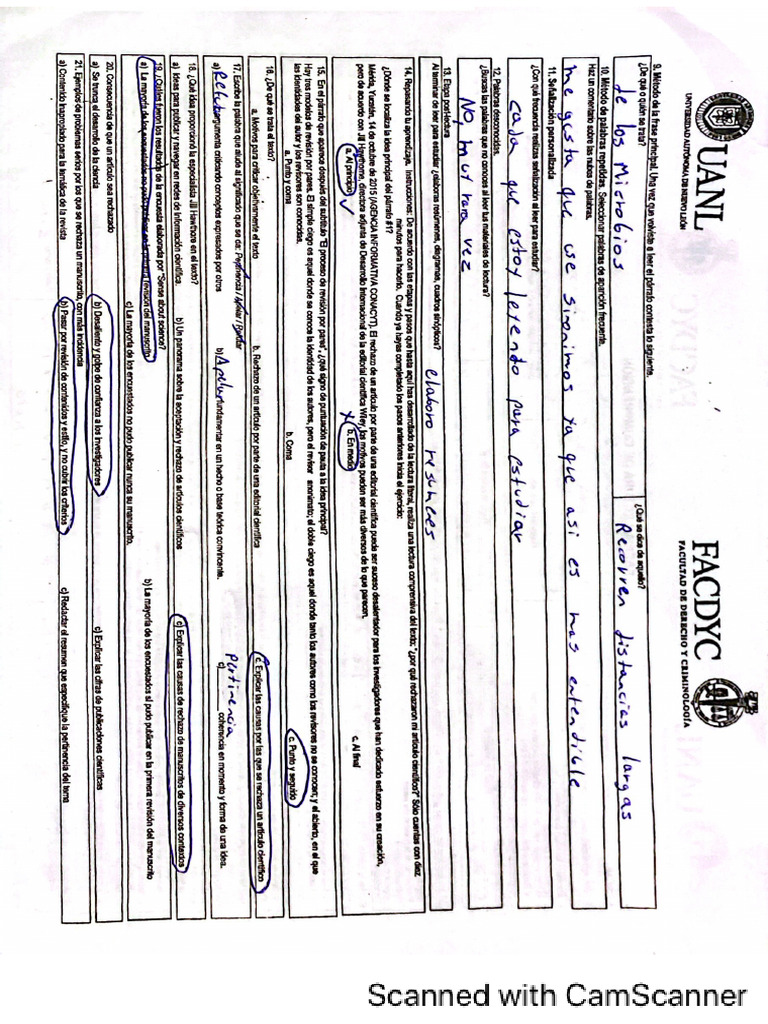 UANL
UNIVERSIDAD AUTÓNOMA DE NUEVO LEÓN
FACDYC
FACULTAD DE DERECHO Y CRIMINOLOGÍA
9. Método de la frase principal. Una vez que volviste a leer el párrafo contesta lo siguiente.
¿De qué o quién se trata?
de los Microbios
¿Qué se dice de aquello?
Recorren distancias largas
10. Método de palabras repetidas. Seleccionar palabras de aparición frecuente.
Haz un comentario sobre las nubes de palabras.
me gusta que use sinonimos ya que asi es mas entendible
11. Señalización personalizada
¿Con qué frecuencia realizas señalización al leer para estudiar?
cada que estoy leyendo para estudiar
12. Palabras desconocidas.
¿Buscas las palabras que no conoces al leer tus materiales de lectura?
No, muy rara vez
13. Etapa post-lectura
Al terminar de leer para estudiar ¿elaboras resúmenes, diagramas, cuadros sinópticos?
elaboro
14. Repasando tu aprendizaje. Instrucciones: De acuerdo con las etapas y pasos que hasta aquí has desarrollado de la lectura literal, realiza una lectura comprensiva del texto: "¿por qué rechazaron mi artículo científico?" Sólo cuentas con diez
minutos para hacerlo. Cuando ya hayas completado los pasos anteriores inicia el ejercicio:
¿Dónde se localiza la idea principal del párrafo #1?
Mérida, Yucatán. 14 de octubre de 2015 (AGENCIA INFORMATIVA CONACYT). El rechazo de un artículo por parte de una editorial científica puede ser suceso desalentador para los investigadores que han dedicado esfuerzo en su creación,
pero de acuerdo con Jill Hawthorne, directora adjunta de Desarrollo Internacional de la editorial científica Wiley, los motivos pueden ser más diversos de lo que parecen.
a. Al principio ✓
X b. En medio
c. Al final
15. En el párrafo que aparece después del subtítulo "El proceso de revisión por pares", ¿qué signo de puntuación da pauta a la idea principal?
Hay tres modelos de revisión por pares. El simple ciego es aquel donde se conoce la identidad de los autores, pero el revisor anonimato; el doble ciego es aquel donde tanto los autores como los revisores no se conocen; y el abierto, en el que
las identidades del autor y los revisores son conocidas.
a. Punto y coma
b. Coma
c. Punto y seguido
16. ¿De qué se trata el texto?
a. Motivos para criticar objetivamente el texto
b. Rechazo de un artículo por parte de una editorial científica
c. Explicar las causas por las que se rechaza un artículo científico
17. Escribe la palabra que alude al significado que se da: Pertinencia / Apelar / Refutar
a) argumenta criticando conceptos expresados por otros
b) Apelar fundamentar en un hecho o base teórica convincente.
pertinencia
c) coherencia en momento y forma de una idea.
18. ¿Qué idea proporcionó la especialista Jill Hawthorne en el texto?
a) Ideas para publicar y navegar en redes de información científica.
b) Un panorama sobre la aceptación y rechazo de artículos científicos
c) Explicar las causas de rechazo de manuscritos de diversos contextos
19. ¿Cuáles fueron los resultados de la encuesta elaborada por "Sense about science?
a) La mayoría de los encuestados no pudo publicar en la primera revisión del manuscrito
b) La mayoría de los encuestados sí pudo publicar en la primera revisión del manuscrito
c) La mayoría de los encuestados no pudo publicar nunca su manuscrito.
20. Consecuencia de que un artículo sea rechazado
a) Se trunca el desarrollo de la ciencia
b) Desaliento y golpe de confianza a los investigadores
c) Explicar las cifras de publicaciones científicas
21. Ejemplos de problemas serios por los que se rechaza un manuscrito, con más incidencia
a) Contenido inapropiado para la temática de la revista
b) Pasar por revisión de contenidos y estilo, y no cubrir los criterios
c) Redactar el resumen que especifique la pertinencia del tema
Scanned with CamScanner